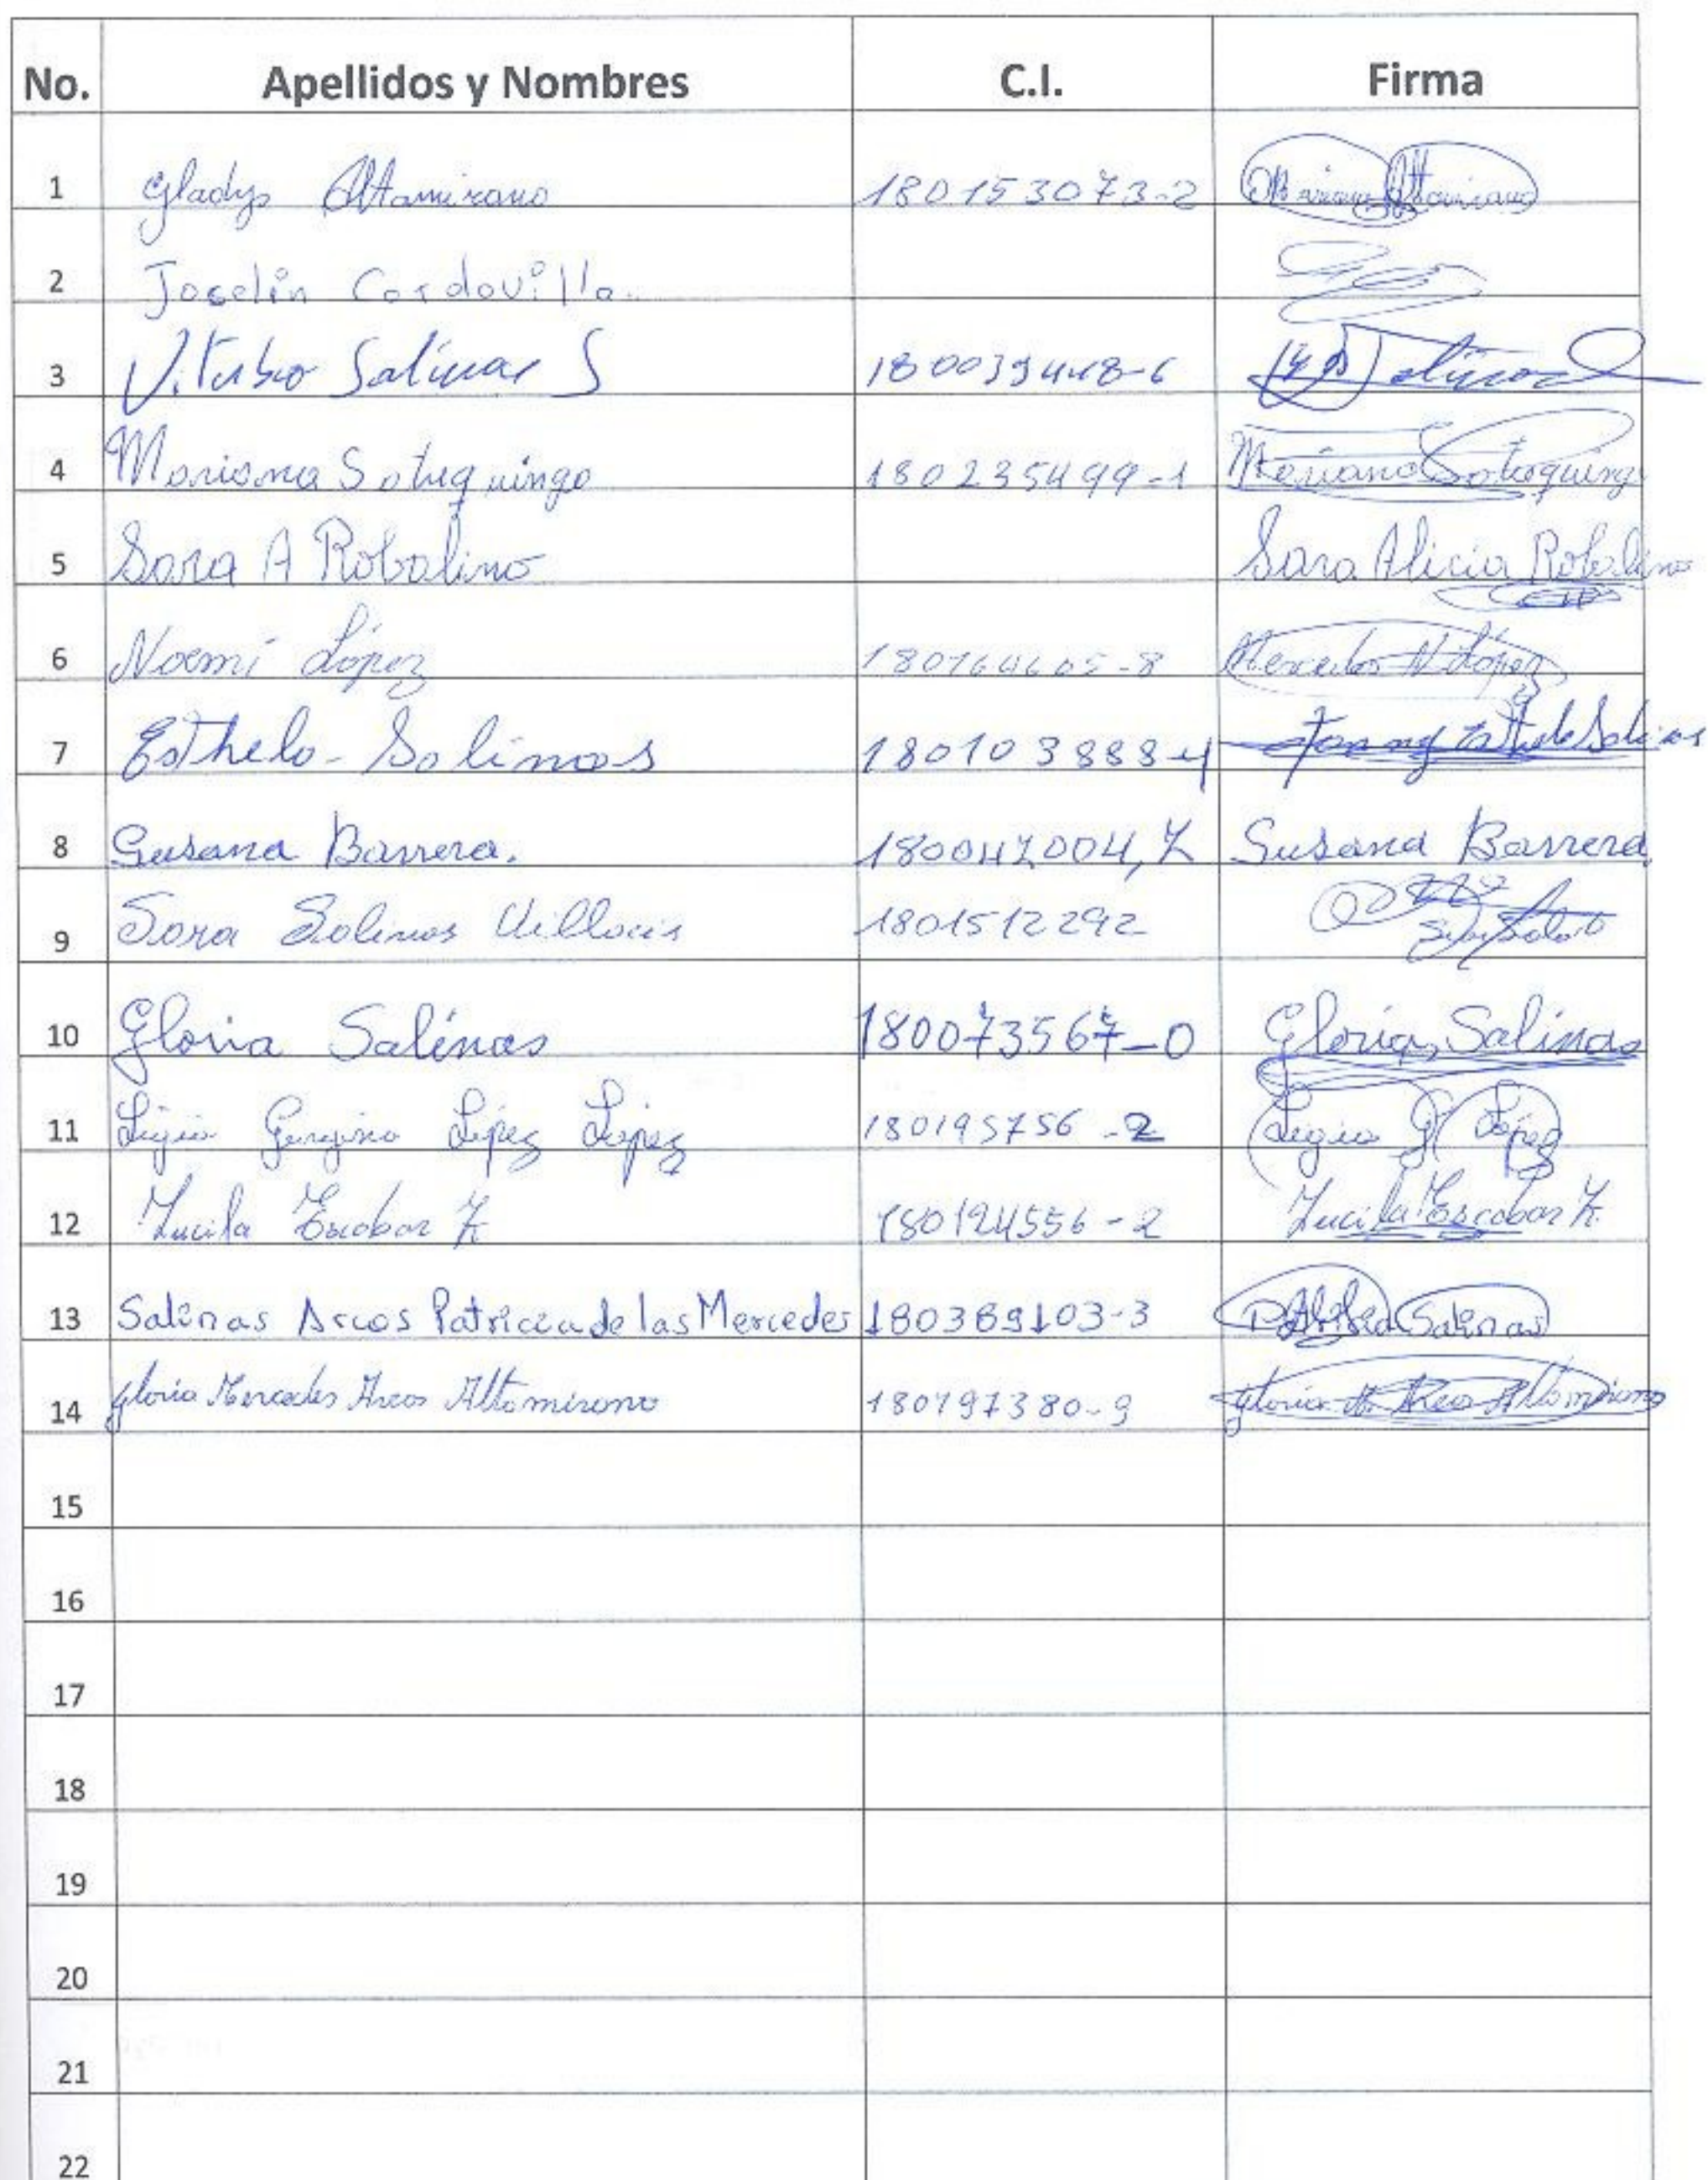 No. Apellidos y Nombres C.I. Firma
1 Gladys Altamirano 180153073-2 Altamirano
2 Joselin Cordovilla.
3 Viterbo Salinas S 180039448-6
4 Mariana Sotuquinga 180235499-1 Mariana Sotuquinga
5 Sara A Robalino Sara Alicia Robalino
6 Noemí López 180164605-8 Mercedes N López
7 Esthela - Salinas 180103888-4 Fanny Esthela Salinas
8 Susana Barrera. 180047004,7 Susana Barrera.
9 Sara Salinas Villacis 1801512292
10 Gloria Salinas 180073567-0 Gloria Salinas
11 Ligia Georgina López López 180195756-2 Ligia G López
12 Lucila Escobar Z 180124556-2 Lucila Escobar Z.
13 Salinas Arcos Patricia de las Mercedes 180389103-3 Patricia Salinas
14 Gloria Mercedes Arcos Altamirano 180197380-9 Gloria M Arcos Altamirano
15
16
17
18
19
20
21
22